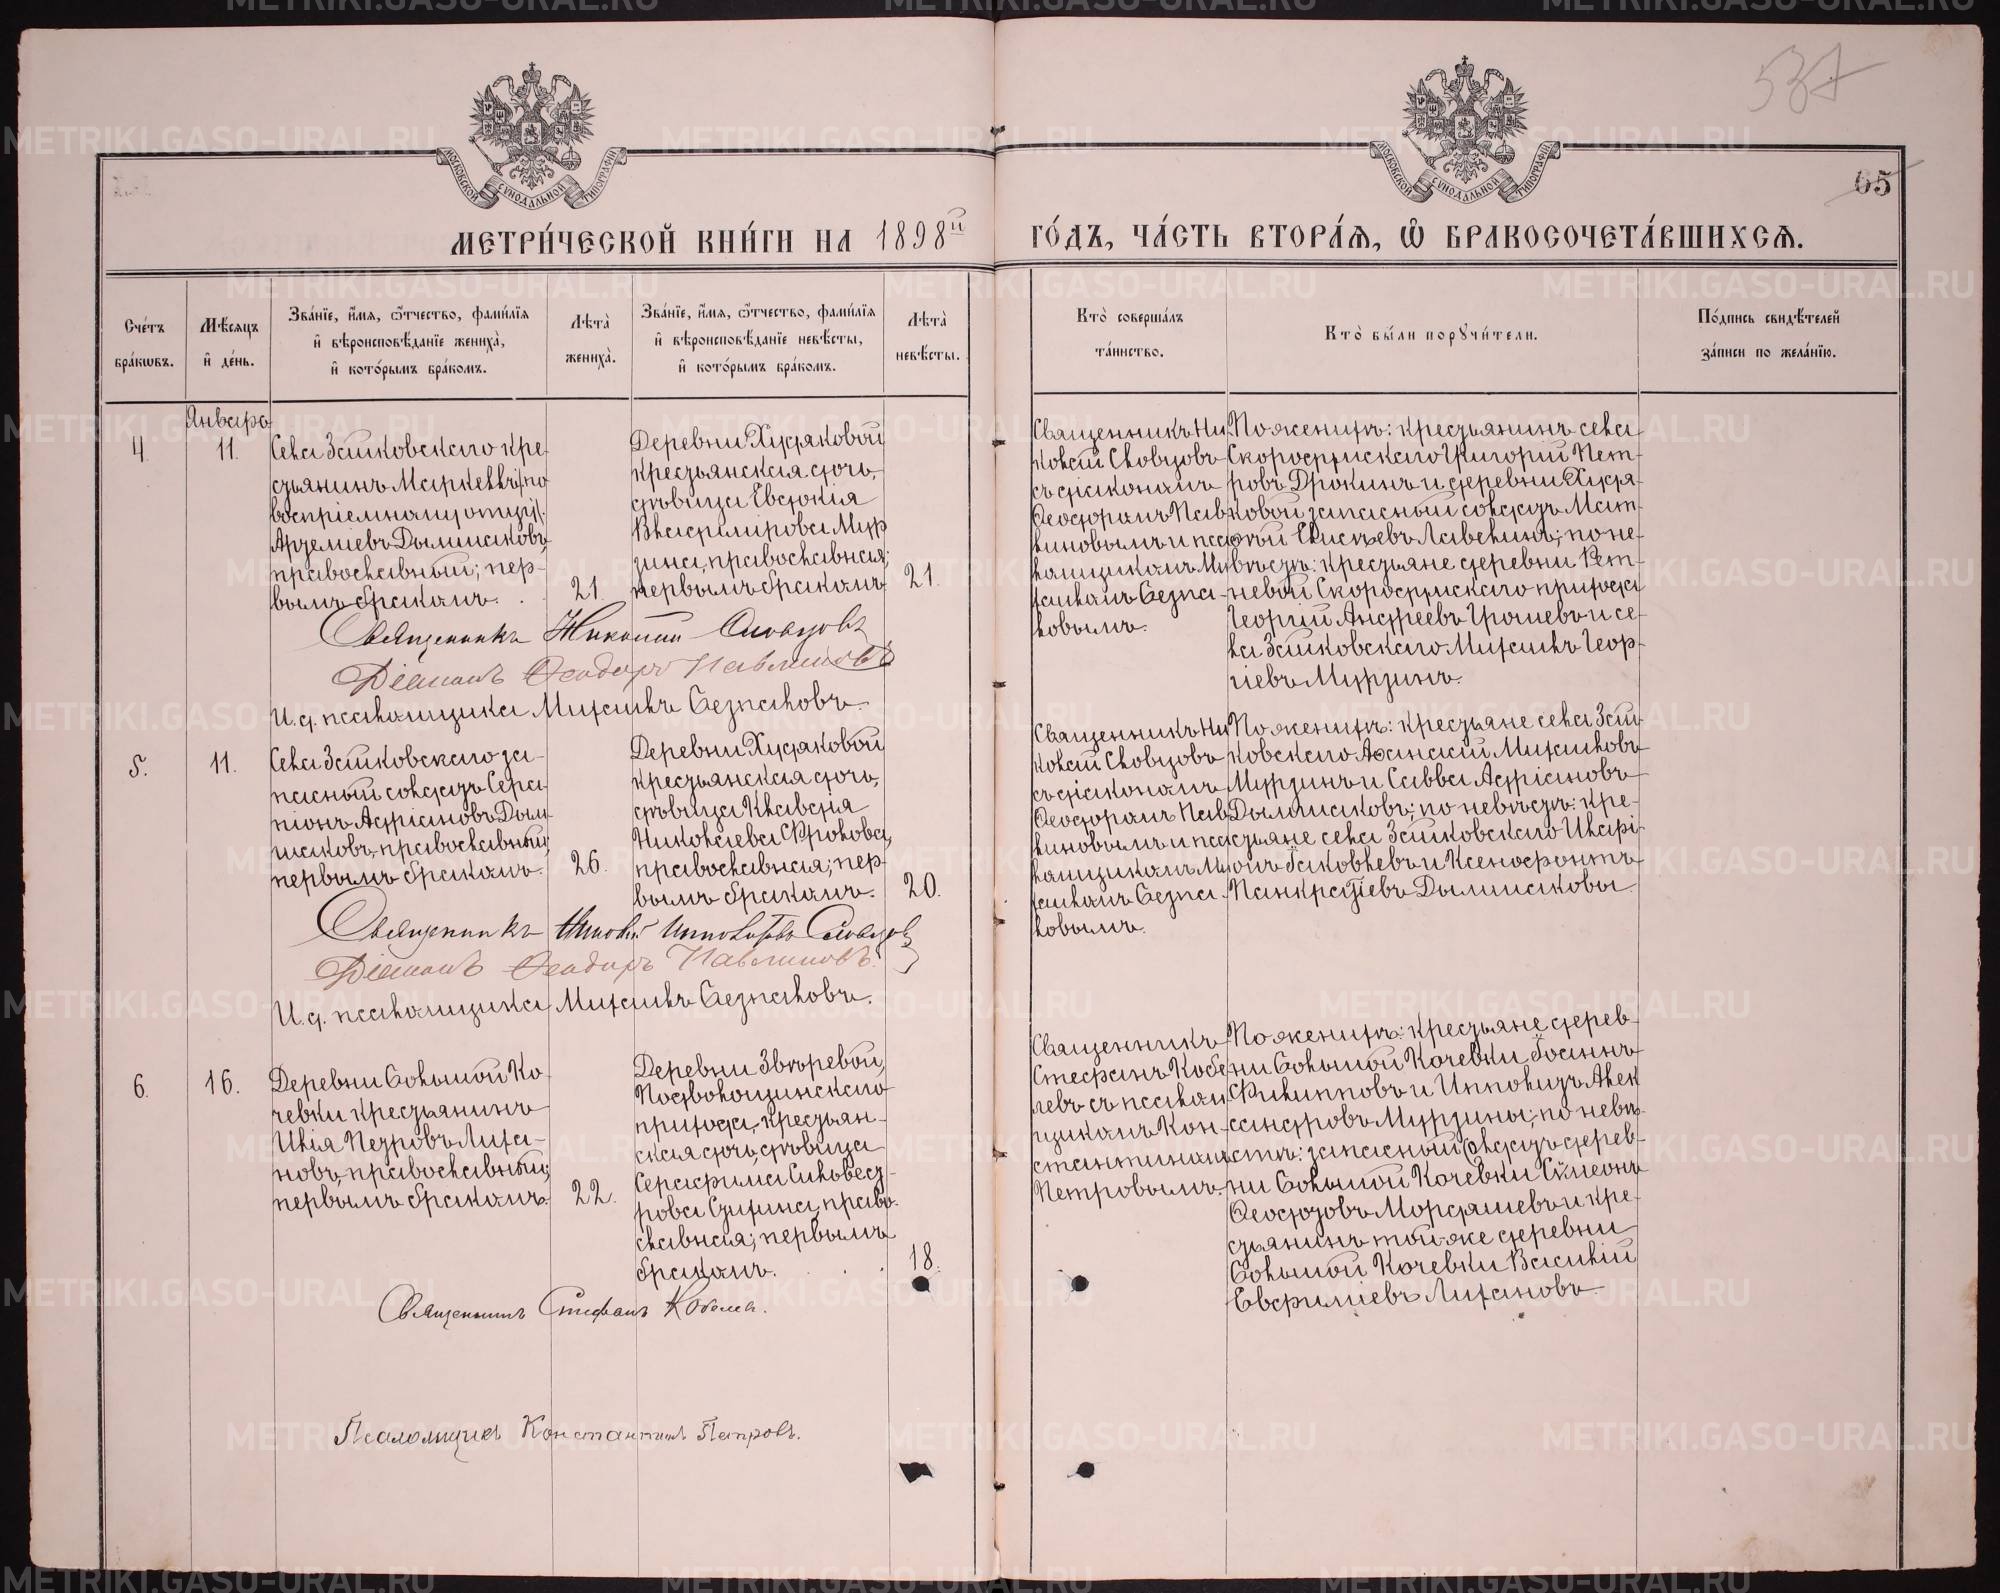 537
65
МОСКОВСКОЙ СѴНОДАЛЬНОЙ ТИПОГРАФІИ
МОСКОВСКОЙ СѴНОДАЛЬНОЙ ТИПОГРАФІИ
МЕТРИ́ЧЕСКОЙ КНИ́ГИ НА 1898й
ГО́ДЪ, ЧА́СТЬ ВТОРА́Ѧ, Ѡ БРАКОСОЧЕТА́ВШИХСѦ.
Сче́тъ
бра́кѡвъ.
Мѣ́сѧцъ
и҆ де́нь.
Зва́нїе, и҆́мѧ, ѻ҆́тчество, фами́лїѧ
и҆ вѣроисповѣ́данїе жениха̀,
и҆ кото́рымъ бра́комъ.
Лѣ́та
жениха̀.
Зва́нїе, и҆́мѧ, ѻ҆́тчество, фами́лїѧ
и҆ вѣроисповѣ́данїе невѣ́сты,
и҆ кото́рымъ бра́комъ.
Лѣ́та
невѣ́сты.
Кто̀ соверша́лъ
та́инство.
Кто̀ бы́ли порꙋчи́тели.
По́дпись свидѣ́телей
за́писи по жела́нїю.
Января
4.
11.
Села Зайковскаго кре-
стьянинъ Маркеллъ (по
воспріемному отцу)
Артемьевъ Дымшаковъ,
православный; пер-
вымъ бракомъ.
21.
Деревни Худяковой
крестьянская дочь,
дѣвица Евдокія
Владимірова Мур
зина, православная;
первымъ бракомъ
21.
Священникъ Ни
колай Словцовъ
съ діакономъ
Ѳеодоромъ Пав
линовымъ и пса
ломщикомъ Ми
хаиломъ Безпа-
ловымъ.
По женихѣ: крестьянинъ села
Скородумскаго Григорій Пет-
ровъ Дрокинъ и деревни Худя
ковой запасный солдатъ Мат-
ѳей Елисѣевъ Лавелинъ; по не-
вѣстѣ: крестьяне деревни Рет-
невой Скородумскаго прихода
Георгій Андреевъ Грошевъ и се-
ла Зайковскаго Михаилъ Геор-
гіевъ Мурзинъ.
Священникъ Николай Словцовъ
Діаконъ Ѳеодоръ Павлиновъ
И. д. псаломщика Михаилъ Безпаловъ.
5.
11.
Села Зайковскаго за-
пасный солдатъ Сера
піонъ Адріановъ Дым
шаковъ, православный;
первымъ бракомъ.
26.
Деревни Худяковой
крестьянская дочь,
дѣвица Клавдія
Николаева Фролова,
православная; пер-
вымъ бракомъ.
20.
Священникъ Ни
колай Словцовъ
съ діакономъ
Ѳеодоромъ Пав
линовымъ и пса
ломщикомъ Ми
хаиломъ Безпа-
ловымъ.
По женихѣ: крестьяне села Зай
ковскаго Аѳанасій Михаиловъ
Мурзинъ и Савва Адріановъ
Дымшаковъ; по невѣстѣ: кре-
стьяне села Зайковскаго Илларі
онъ Іаковлевъ и Ксенофонтъ
Панкратіевъ Дымшаковы
Священникъ Николай Ипполитовъ Словцовъ
Діаконъ Ѳеодоръ Павлиновъ.
И. д. псаломщика Михаилъ Безпаловъ.
6.
16.
Деревни Большой Ко
чевки крестьянинъ
Илія Петровъ Лиха-
новъ, православный;
первымъ бракомъ.
22.
Деревни Звѣревой,
Подволошинскаго
прихода, крестьян-
ская дочь, дѣвица
Серафима Сильвест-
рова Стихина, право-
славная; первымъ
бракомъ.
18.
Священникъ
Стефанъ Кобе
левъ съ псалом
щикомъ Кон-
стантиномъ
Петровымъ.
По женихѣ: крестьяне дерев-
ни Большой Кочевки Іоаннъ
Филипповъ и Ипполитъ Алек
сандровъ Мурзины; по невѣ-
стѣ: запасный солдатъ дерев-
ни Большой Кочевки Сѵмеонъ
Ѳеодотовъ Мордяшевъ и кре-
стьянинъ той-же деревни
Большой Кочевки Василій
Евфиміевъ Лихановъ
Священникъ Стефанъ Кобелевъ.
Псаломщикъ Константинъ Петровъ.
METRIKI.GASO-URAL.RU